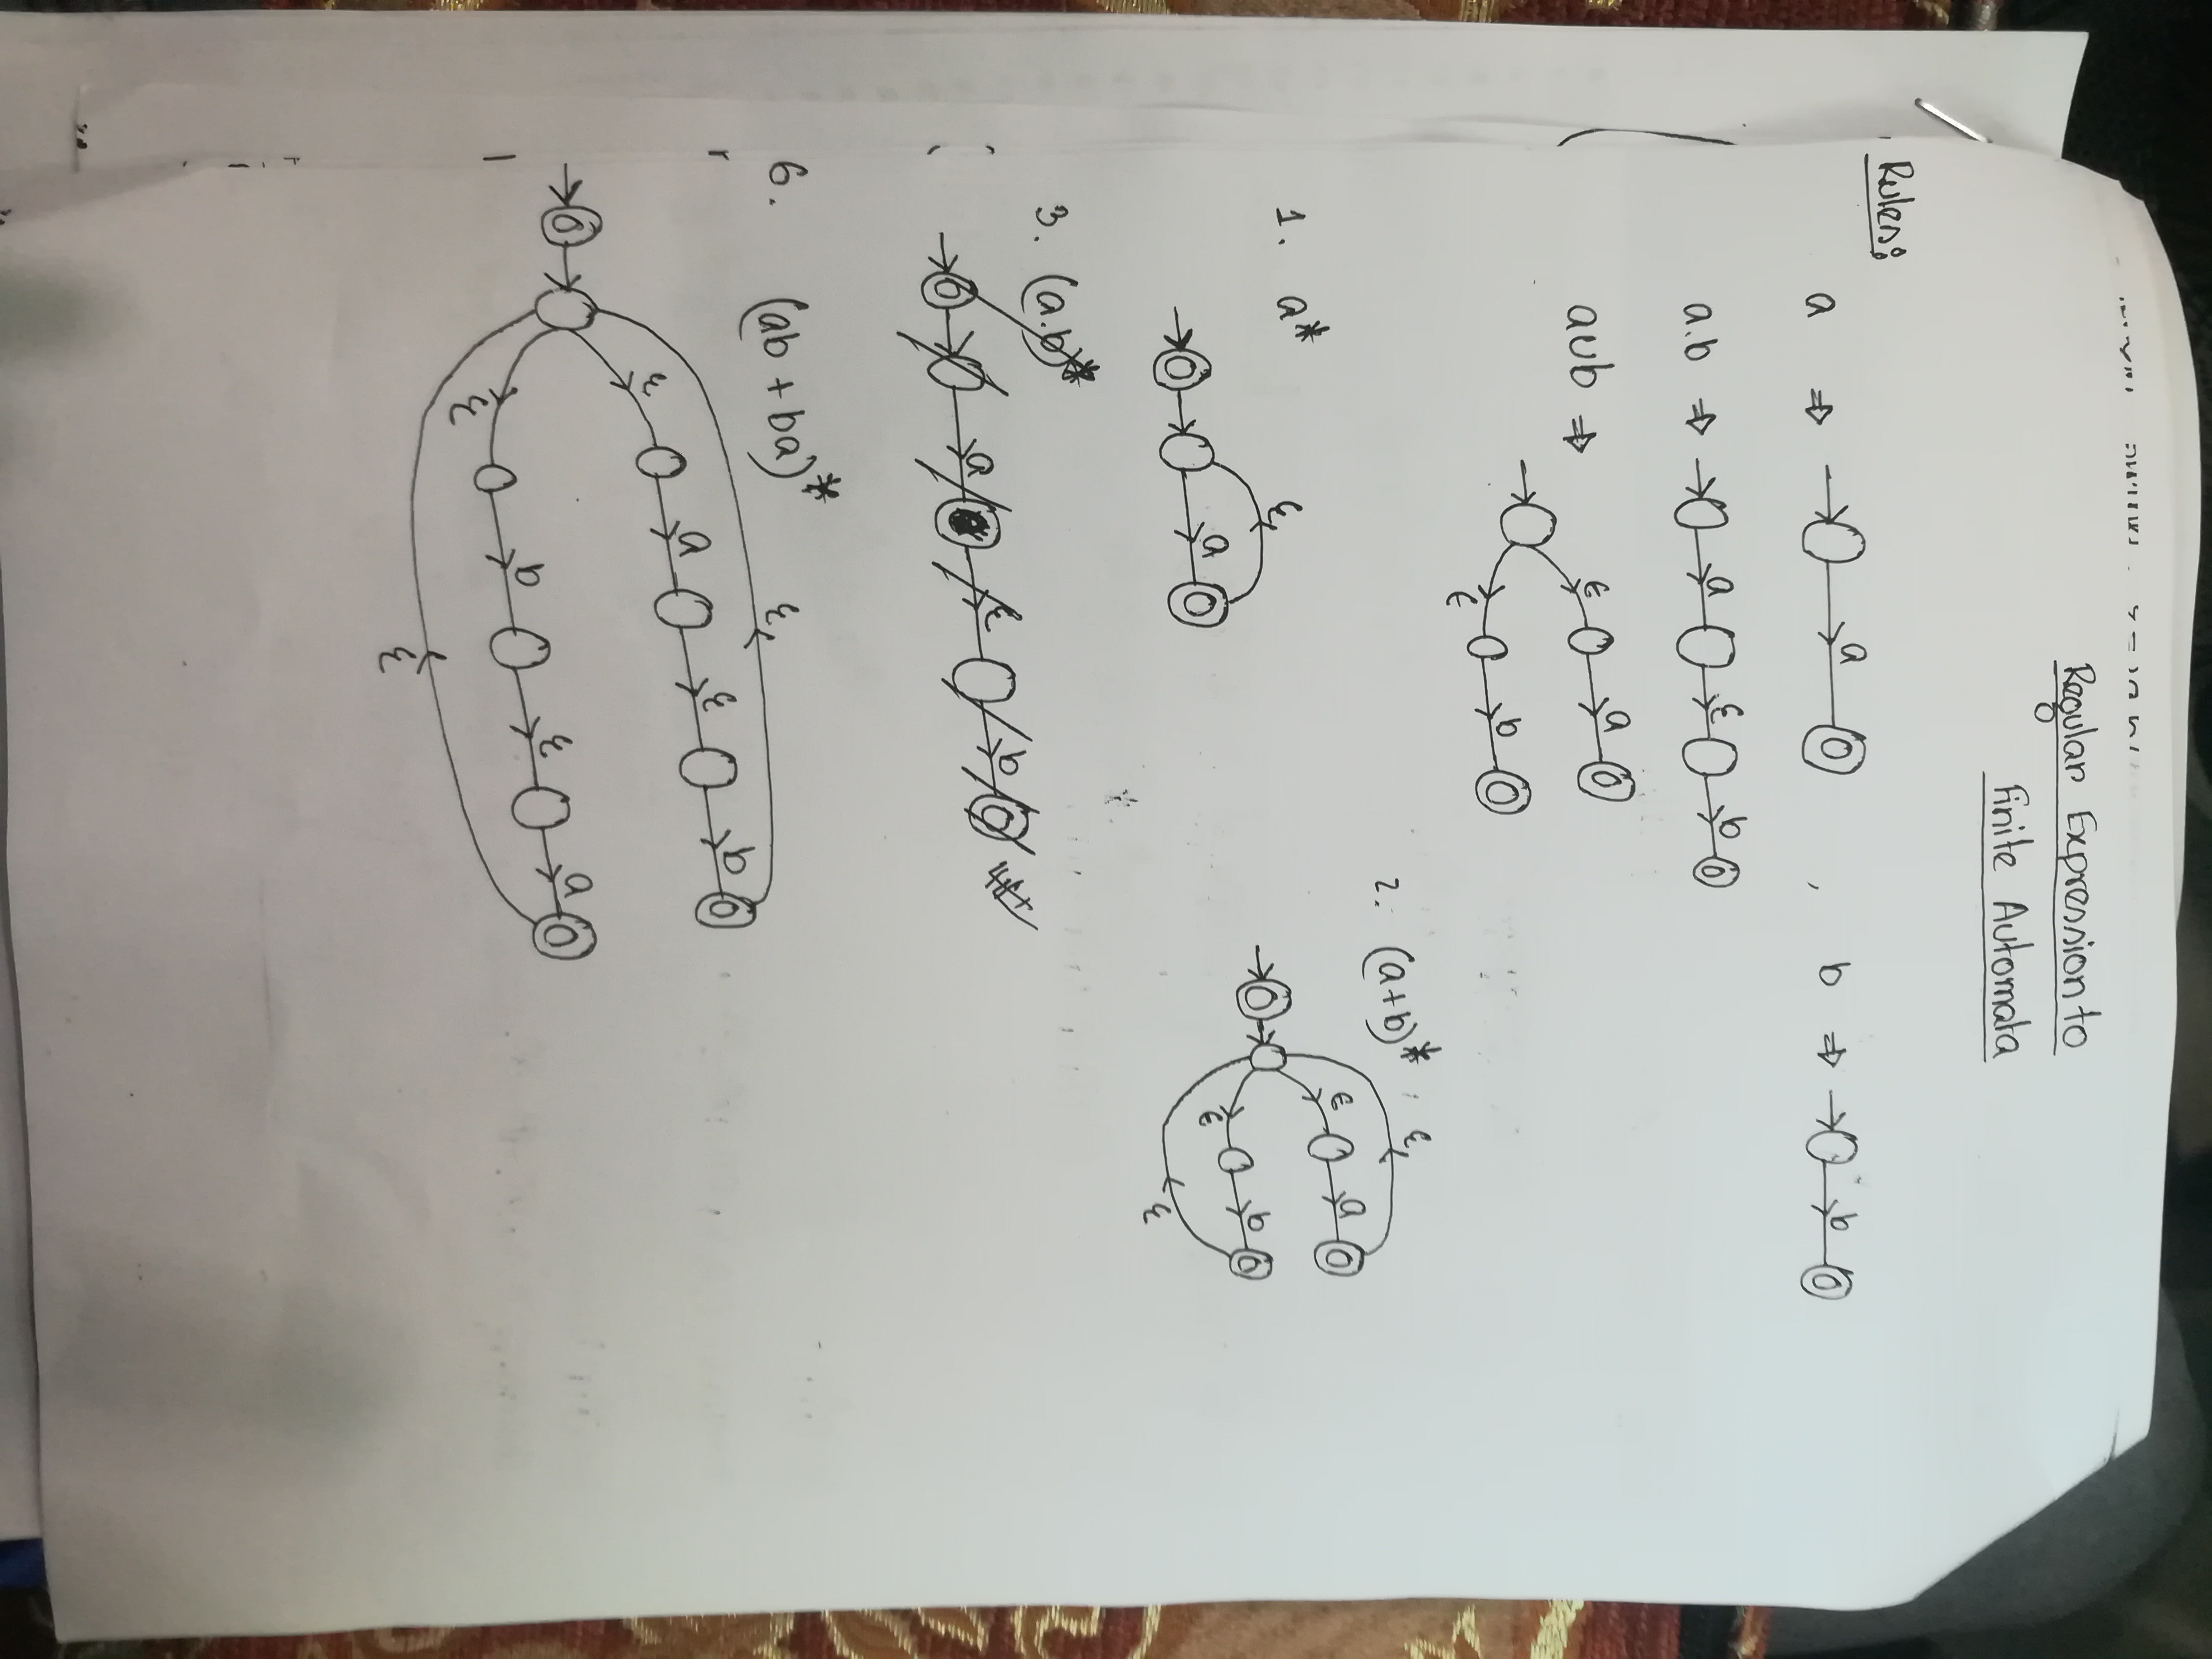 Regular Expression to
Finite Automata
Rules:
a ⇒ a , b ⇒ b
a.b ⇒ a ε b
a∪b ⇒ ε a
ε b
2. (a+b)*
ε
ε a
ε b
ε
1. a*
ε
a
3. (a.b)*
a ε b
6. (ab + ba)*
ε
ε a ε b
ε b ε a
ε